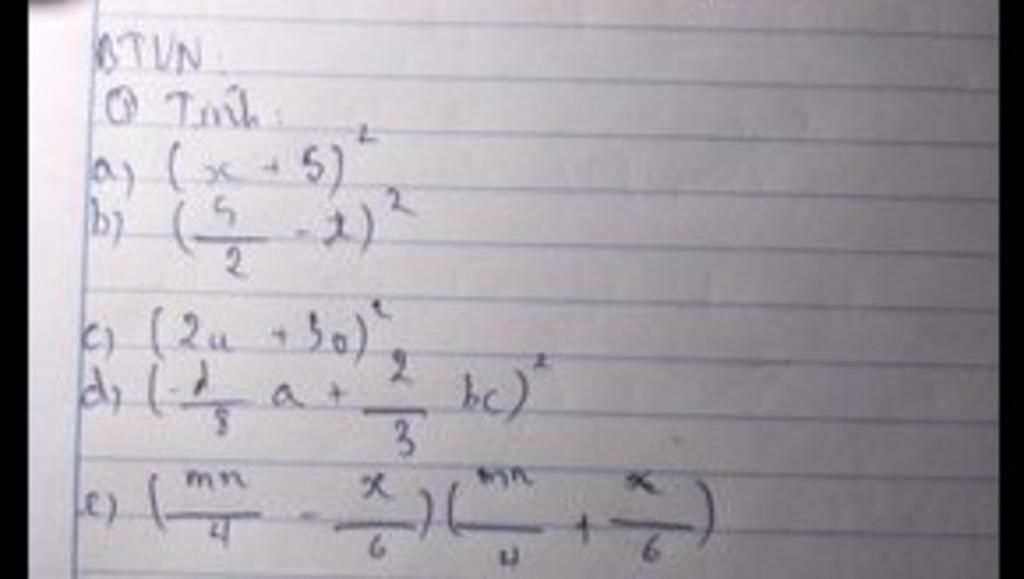 BTVN:
① Tính:
a) (x + 5)²
b) (5/2 - t)²
c) (2u + 3v)²
d) (-1/8 a + 2/3 bc)²
e) (mn/4 - x/6)(mn/4 + x/6)